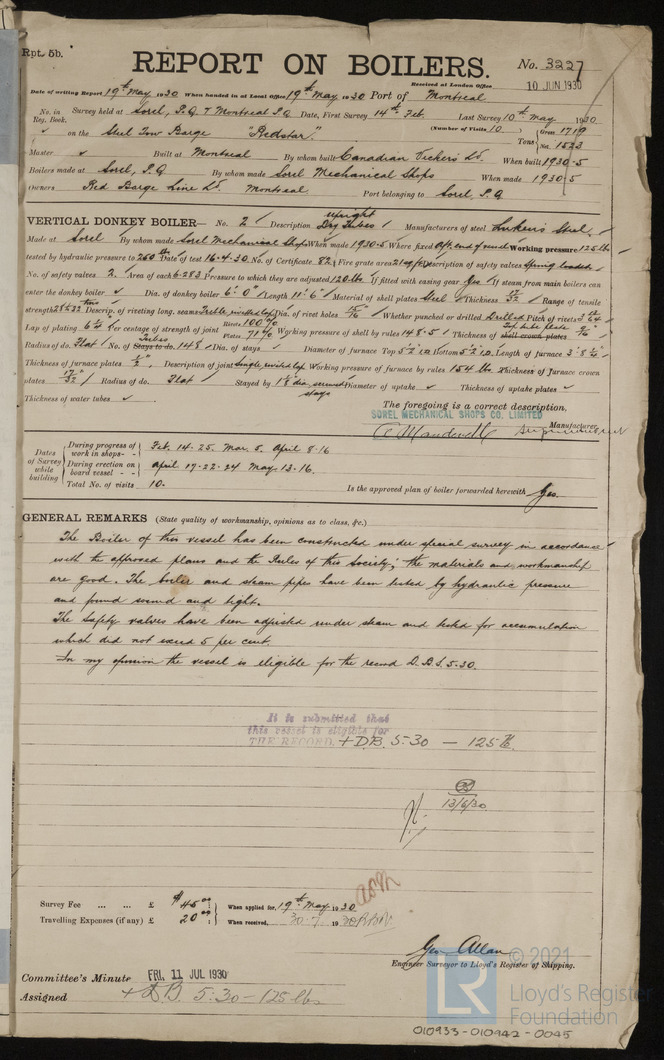 Rpt. 5b.
REPORT ON BOILERS.
No. 3227
Received at London Office 10 JUN 1930
Date of writing Report 19th May 1930 When handed in at Local Office 19th May 1930 Port of Montreal
No. in Reg. Book. Survey held at Sorel, P.Q. & Montreal P.Q Date, First Survey 14th Feb. Last Survey 10th May 1930
on the Steel Tow Barge "Redstar". (Number of Visits 10) Tons Gross 1719 Net 1523
Master Built at Montreal By whom built Canadian Vickers Ld. When built 1930-5
Boilers made at Sorel, P.Q By whom made Sorel Mechanical Shops When made 1930-5
Owners Red Barge Line Ld. Montreal Port belonging to Sorel, P.Q
VERTICAL DONKEY BOILER— No. 2 Description upright Dry Tubes Manufacturers of steel Lukens Steel
Made at Sorel By whom made Sorel Mechanical Shops When made 1930-5 Where fixed Aft. end of vessel Working pressure 125 lbs
tested by hydraulic pressure to 260 Date of test 16.4.30 No. of Certificate 82 Fire grate area 21 Description of safety valves Spring loaded
No. of safety valves 2. Area of each 6.283 Pressure to which they are adjusted 120 lbs If fitted with easing gear Yes If steam from main boilers can
enter the donkey boiler Dia. of donkey boiler 6'. 0" Length 11'. 6" Material of shell plates Steel Thickness Range of tensile
strength 28 to 32 tons Descrip. of riveting long. seams Treble riveted lap Dia. of rivet holes 15/16" Whether punched or drilled Drilled Pitch of rivets
Lap of plating Per centage of strength of joint Rivets 100% Plates 71% Working pressure of shell by rules 148.5 Thickness of shell crown plates tube plate
Radius of do. Flat No. of Stays to do. Tubes 148 Dia. of stays Diameter of furnace Top Bottom Length of furnace
Thickness of furnace plates 1/2" Description of joint Single riveted lap Working pressure of furnace by rules 154 lbs Thickness of furnace crown
plates 17/32" Radius of do. Flat Stayed by 1 1/8" dia screwed stays Diameter of uptake Thickness of uptake plates
Thickness of water tubes
The foregoing is a correct description,
SOREL MECHANICAL SHOPS CO. LIMITED
Manufacturer.
Superintendent
Dates of Survey while building
During progress of work in shops - - Feb. 14-25. Mar. 5. April 8-16
During erection on board vessel - - - April 17-22-24 May 13-16.
Total No. of visits 10.
Is the approved plan of boiler forwarded herewith Yes.
GENERAL REMARKS (State quality of workmanship, opinions as to class, &c.)
The Boiler of this vessel has been constructed under special survey in accordance
with the approved plans and the Rules of this Society; the materials and workmanship
are good. The boiler and steam pipes have been tested by hydraulic pressure
and found sound and tight.
The Safety valves have been adjusted under steam and tested for accumulation
which did not exceed 5 per cent.
In my opinion the vessel is eligible for the record D.B.S. 5.30.
It is submitted that
this vessel is eligible for
THE RECORD. + D.B. 5.30 — 125 lb.
13/6/30
Survey Fee ... ... £ $45 00 When applied for, 19th May 1930
Travelling Expenses (if any) £ 20 00 When received, 30.7 1930
Geo. Allan
Engineer Surveyor to Lloyd's Register of Shipping.
Committee's Minute FRI. 11 JUL 1930
Assigned + D.B. 5.30 - 125 lbs
© 2021
LR
Lloyd's Register
Foundation
010933-010942-0045